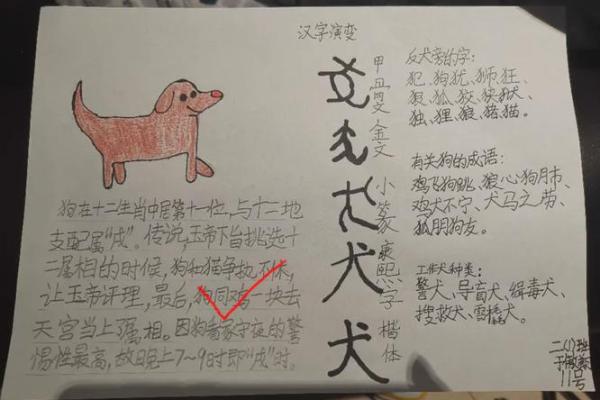 汉字演变
狗在十二生肖中居第十一位,与十二地
支配属“戌”。传说,玉帝下旨挑选十
二属相的时候,狗和猫争执不休,
让玉帝评理,最后,狗同鸡一块去
天宫当上属相。因狗看家守夜的警
惕性最高,故日晚上7~9时即“戌”时。
甲骨文
金文
小篆
康熙字
楷体
犬
犬
反犬旁的字:
犯、狗、犹、狮、狂、
狠、狐、狡、狭、狱、
独、狸、狼、猪、猫。
有关狗的成语:
鸡飞狗跳、狼心狗肺、
鸡犬不宁、犬马之劳、
狐朋狗友。
工作犬种类:
警犬、导盲犬、缉毒犬、
搜救犬、雪橇犬。
二(1)班
11号